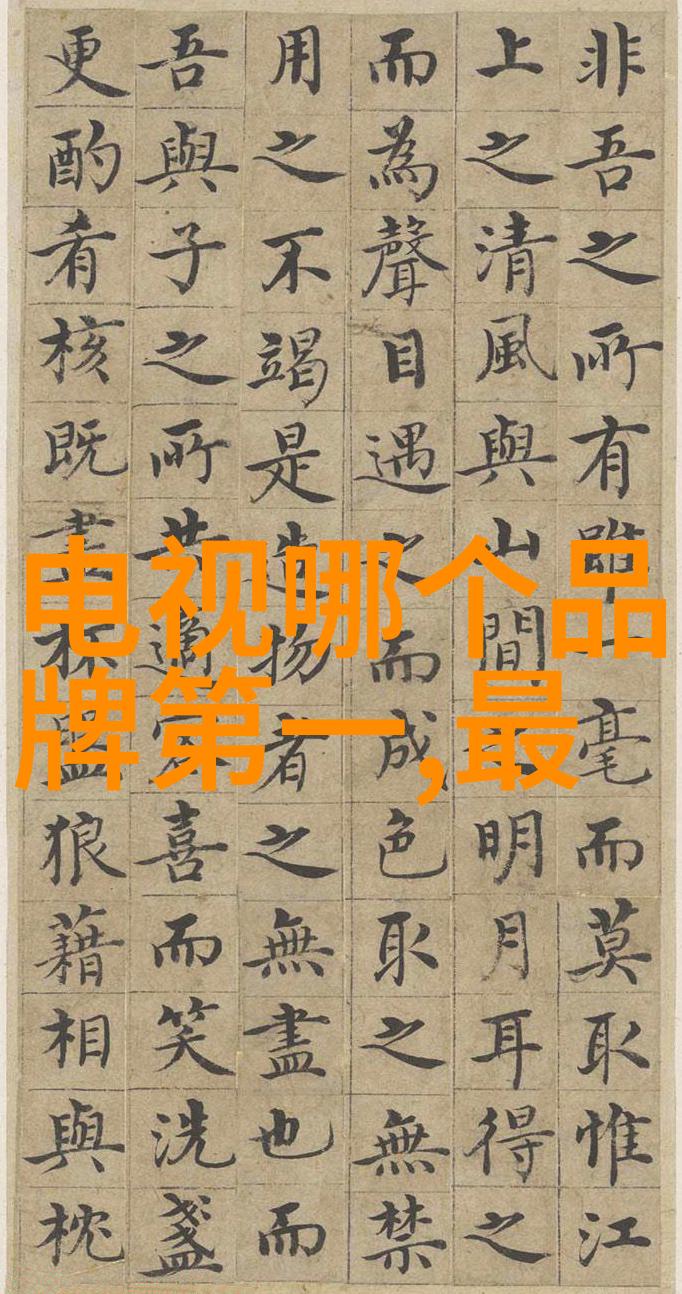 非吾之所有雖一毫而莫取惟江
上之清風與山間之明月耳得之
而為聲目遇之而成色取之無禁
用之不竭是造物者之無盡也而
吾與子之所共適客喜而笑洗盞
更酌肴核既盡杯盤狼藉相與枕
电视哪个品
牌第一,最